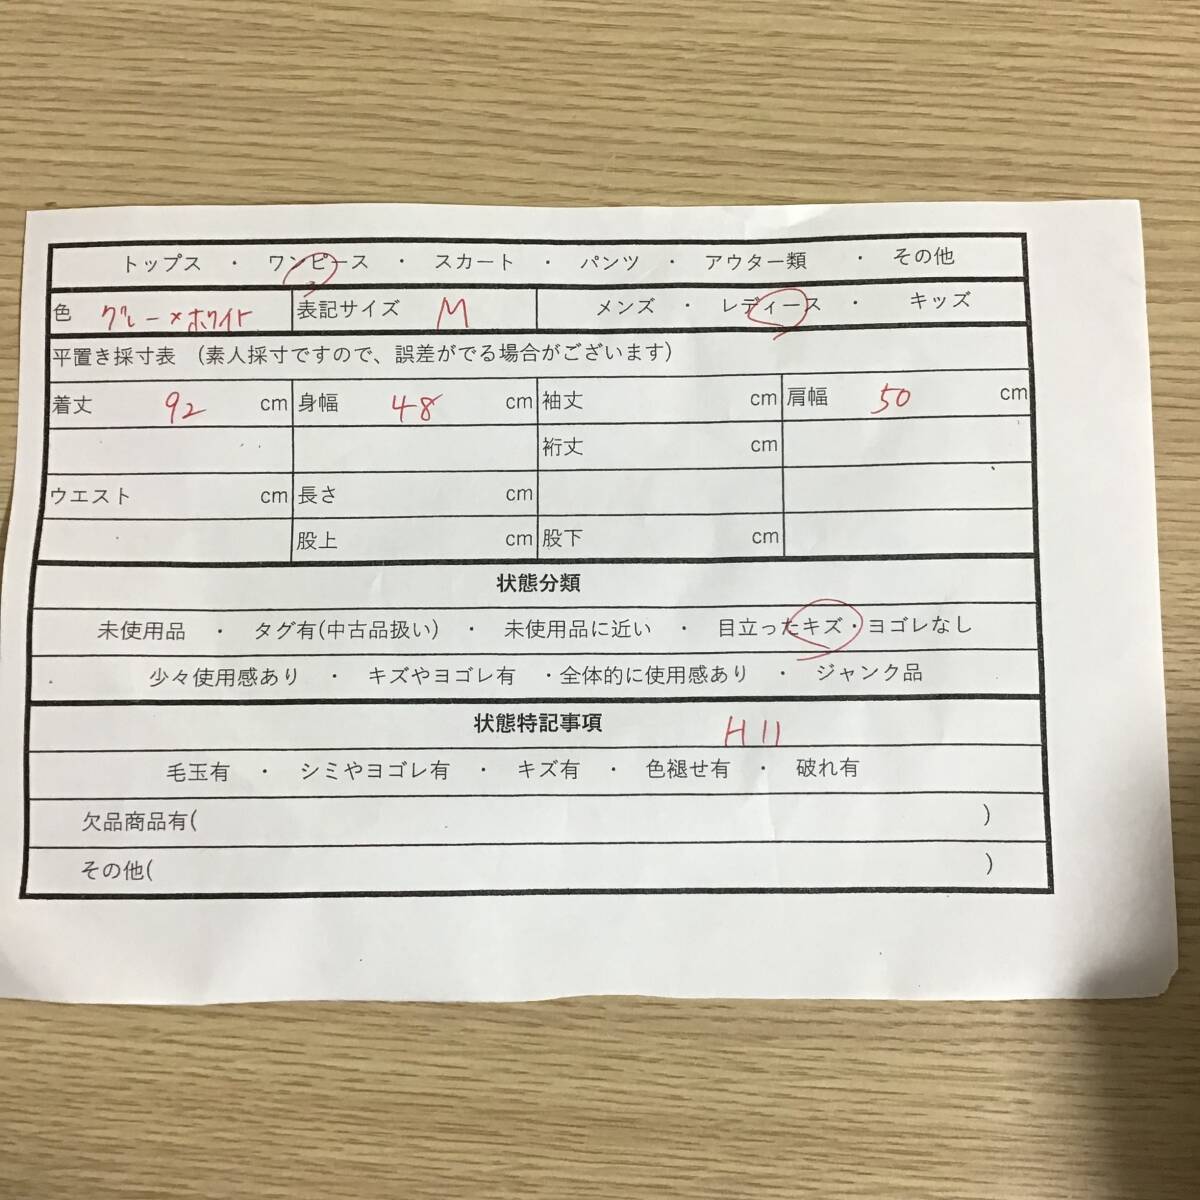 トップス ・ ワンピース ・ スカート ・ パンツ ・ アウター類 ・ その他
色 グレー×ホワイト 表記サイズ M メンズ ・ レディース ・ キッズ
平置き採寸表 (素人採寸ですので、誤差がでる場合がございます)
着丈 92 cm 身幅 48 cm 袖丈 cm 肩幅 50 cm
裄丈 cm
ウエスト cm 長さ cm
股上 cm 股下 cm
状態分類
未使用品 ・ タグ有(中古品扱い) ・ 未使用品に近い ・ 目立ったキズ・ヨゴレなし
少々使用感あり ・ キズやヨゴレ有 ・全体的に使用感あり ・ ジャンク品
状態特記事項 H11
毛玉有 ・ シミやヨゴレ有 ・ キズ有 ・ 色褪せ有 ・ 破れ有
欠品商品有( )
その他( )